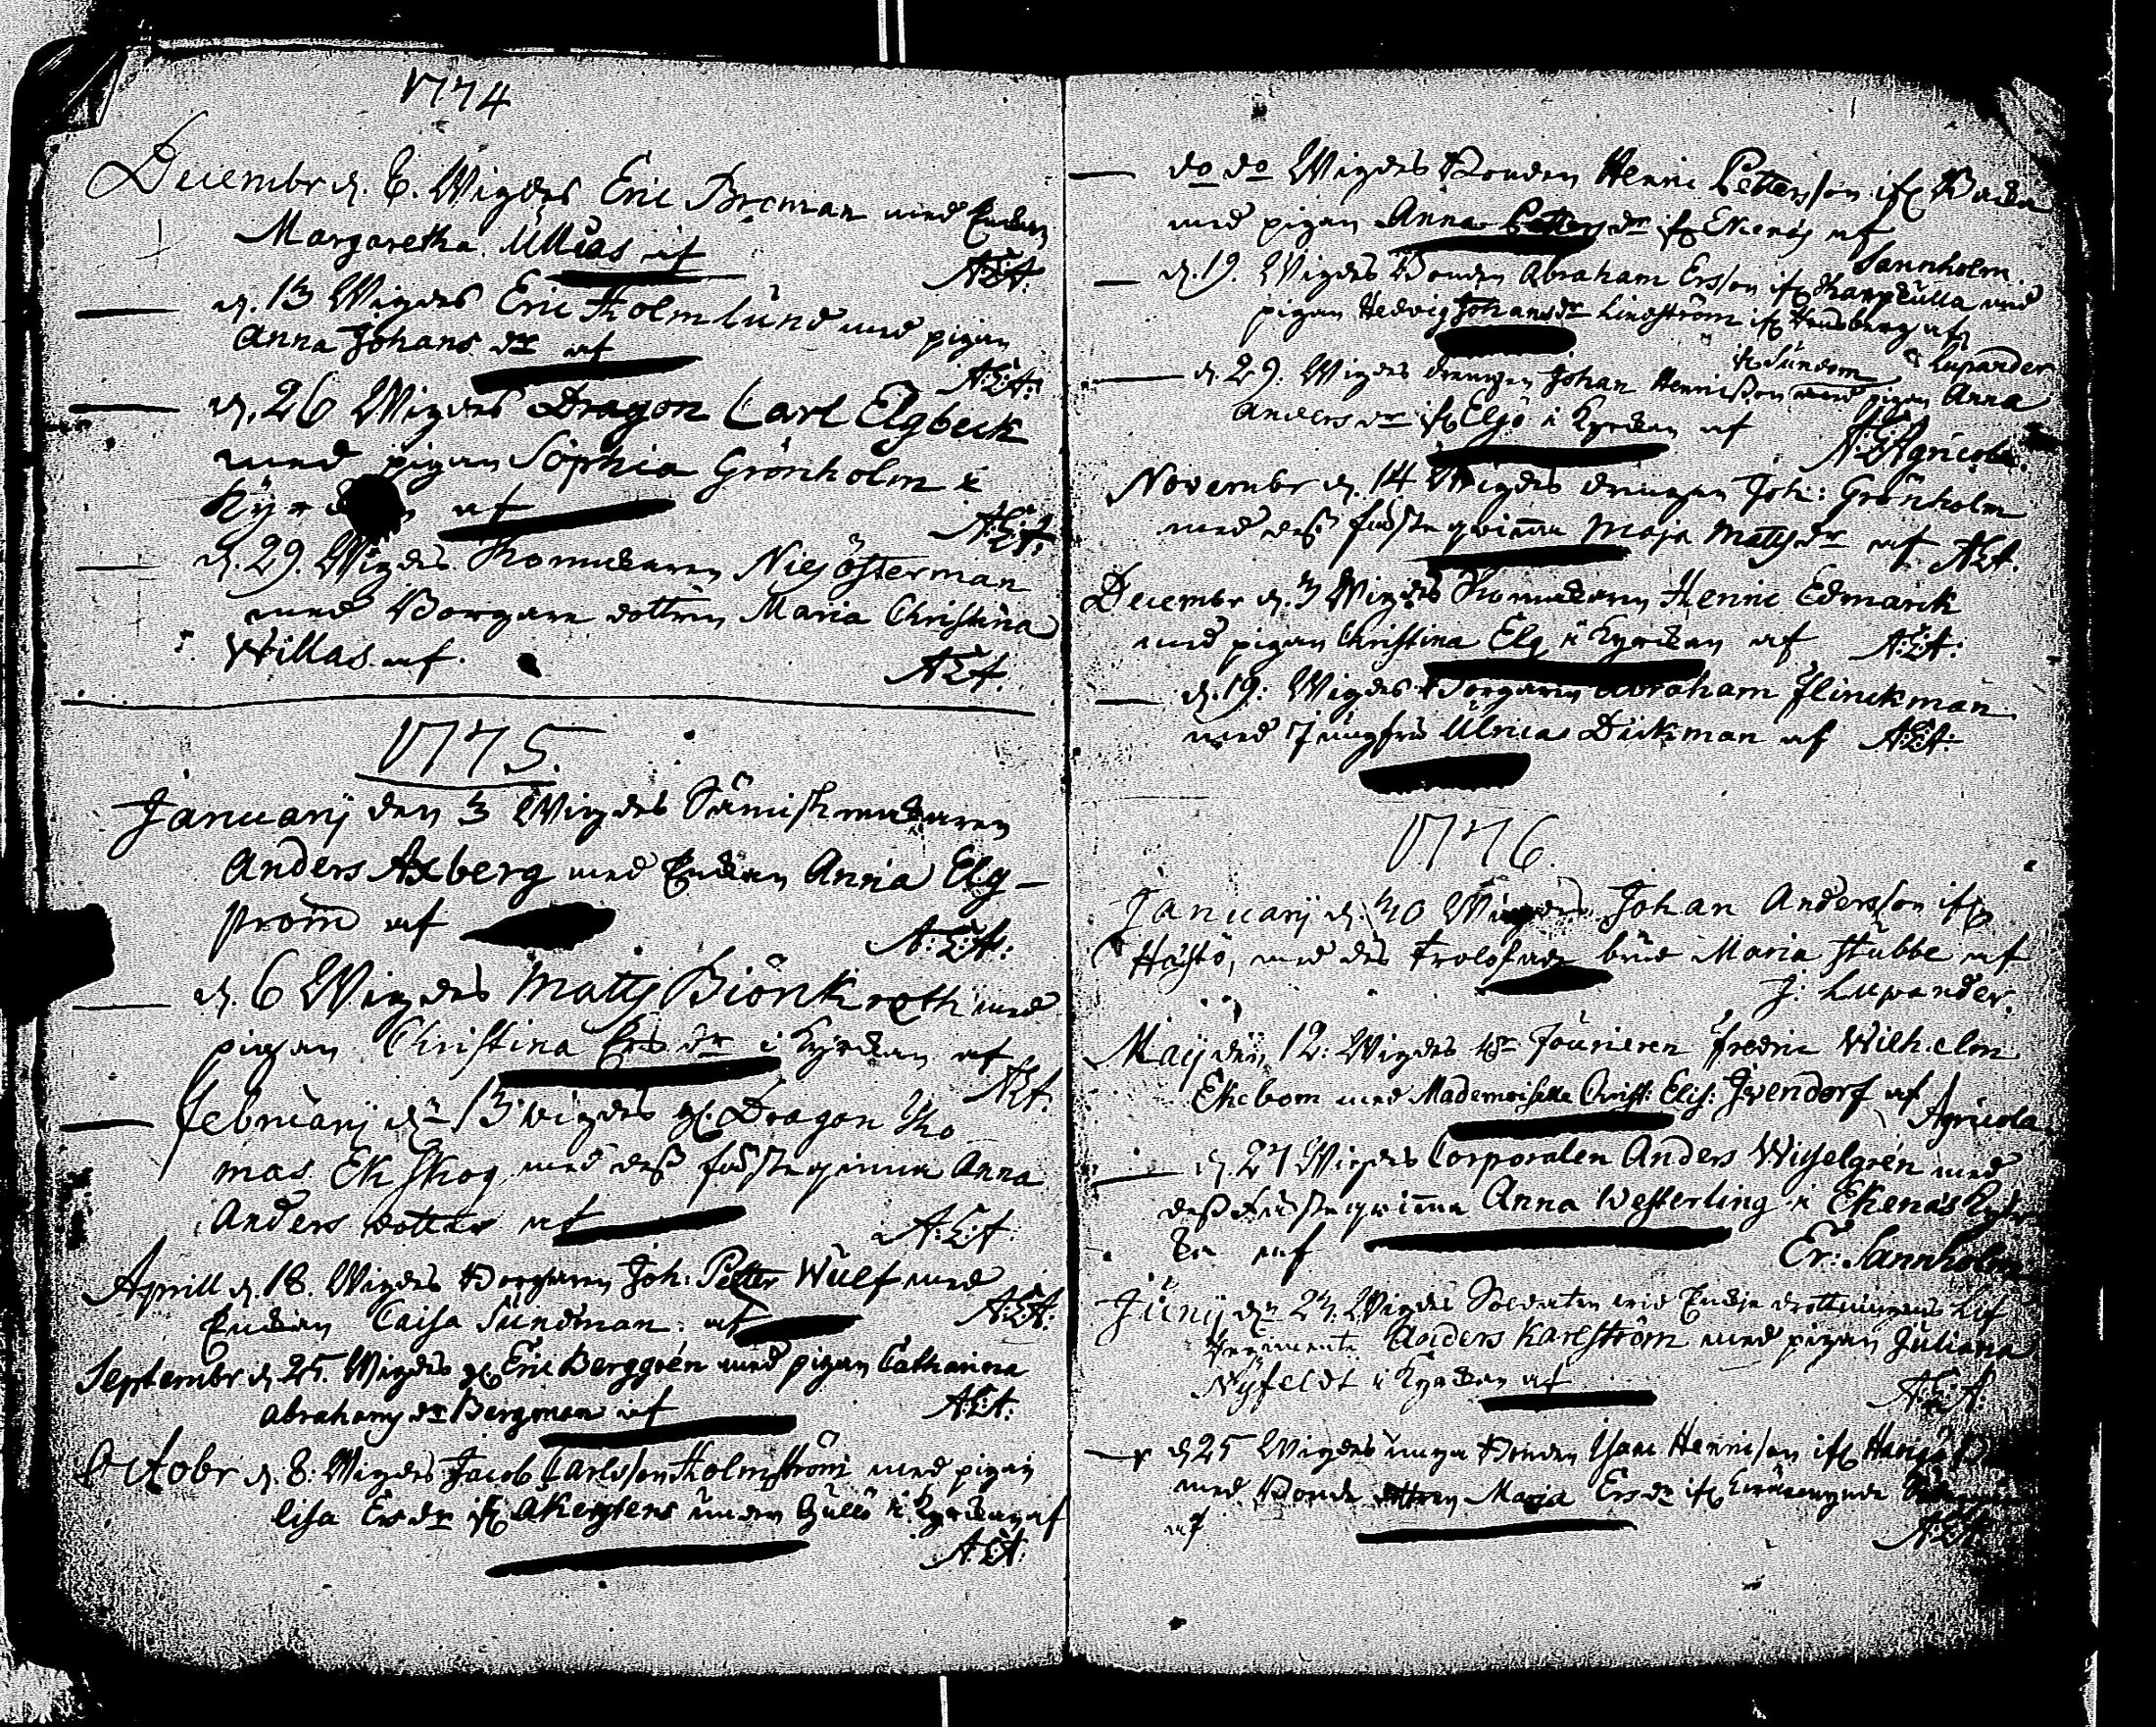 1774
Decembr d. 6. Wigdes Eric Broman med Enkan
Margaretha Ullias af A:E:A:
d. 13 Wigdes Eric Holmlund med pigan
Anna Johans dr af A:E:A:
d. 26 Wigdes Dragon Carl Elgbeck
med pigan Sophia Grönholm i
Kyrkan af A:E:A:
d. 29. Wigdes Skomakaren Nils Österman
med Borgare dottren Maria Christina
Willas af A:E:A.
1775.
Januarij den 3 Wigdes Sämskmakaren
Anders Axberg med Enkan Anna Elg-
ström af A:E:A:
d. 6 Wigdes Matts Biönkroth med
pigan Christina Ers dr i Kyrkan af
A:E:A:
Februarij dn 13 wigdes Dragon Tho
mas Ekskog med dess fästeqvinna Anna
Anders dotter af A:E:A:
Aprill d. 18. Wigdes Borgaren Joh: Petter Wulf med
Enkan Caisa Sundman. af A:E:A:
Septembr d. 25. Wigdes Eric Berggrén med pigan Catharina
Abrahams dr Bergman af A:E:A:
Octobr d. 8. Wigdes Jacob Carlsson Holmström med pigan
Lisa Ers dr ifr under Gullö i Kyrkan af
A:E:A:
do do Wigdes Bonden Henric Pettersson ifr Backa
med pigan Anna Petters dr ifr Ekenäs af
Sannholm
d. 19. Wigdes Bonden Abraham Ersson ifr Harpkulla med
pigan Hedvig Johans dr Lindström ifr af
Lupander
d. 29. Wigdes drengen Johan Henricsson ifr Sundom med pigan Anna
Anders dr ifr Elgö i Kyrkan af A:E:Agricola.
Novembr d. 14 Wigdes drengen Joh: Grönholm
med dess fästeqwinna Maja Matts dr af A:E:A.
Decembr d. 3 Wigdes Skomakaren Henric Edmarck
med pigan Christina Elg i Kyrkan af A:E:A:
d. 19: Wigdes Borgaren Abraham Flinckman
med Jungfru Ulrica Dickman af A:E:A:
1776.
Januarij d. 30 Wigdes Johan Andersson ifr
Hästö, med des trolofade brud Maria Stubbe af
J: Lupander.
Maij den 12: Wigdes Hr Fourieren Fredric Wilhelm
Ekebom med Mademoiselle Christ: Elis: Ivendorf af
Agricola
d 27 Wigdes Corporalen Anders Wisselgrén med
dess fästeqwinna Anna Westerling i Ekenäs Kyr
ka af Er: Sannholm
Junij dn 23. Wigdes Soldaten wid Enkje drottningens Lif
Regimente Anders Karlström med pigan Juliana
Nyfeldt i Kyrkan af A:E:A:
d 25 Wigdes unga Bonden Isaac Henricsson ifr
med Bonde dottren Maja Ers dr ifr
af A:E:A: